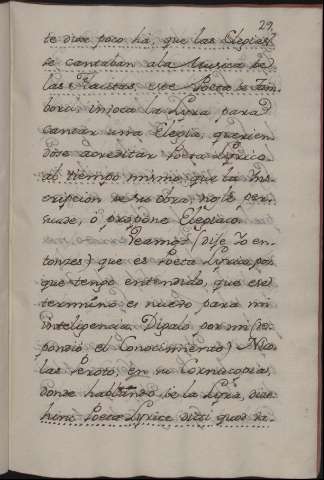 29
te dixe poco ha, que las Elegias
se cantaban a la Musica de
las Flautas, ese Poeta se Tam-
bora; invoca la Lyra para
cantar una Elegia, querien-
dose acreditar Poeta Lyrico
al tiempo mismo que la Ins-
cripcion de su obra, nos le per-
suade, ò propone Elegiaco.
Veamos (dixe Yo en-
tonzes) que es Poeta Lyrico, por
que tengo entendido, que ese
termino es nuevo para mi
inteligencia. Digalo por mi (res-
pondiò el Conocimiento) Nico-
las Peroto, en su Cornucopias,
donde hablando de la Lyra, dice
hinc Poetæ Lyrici dicti quod va-